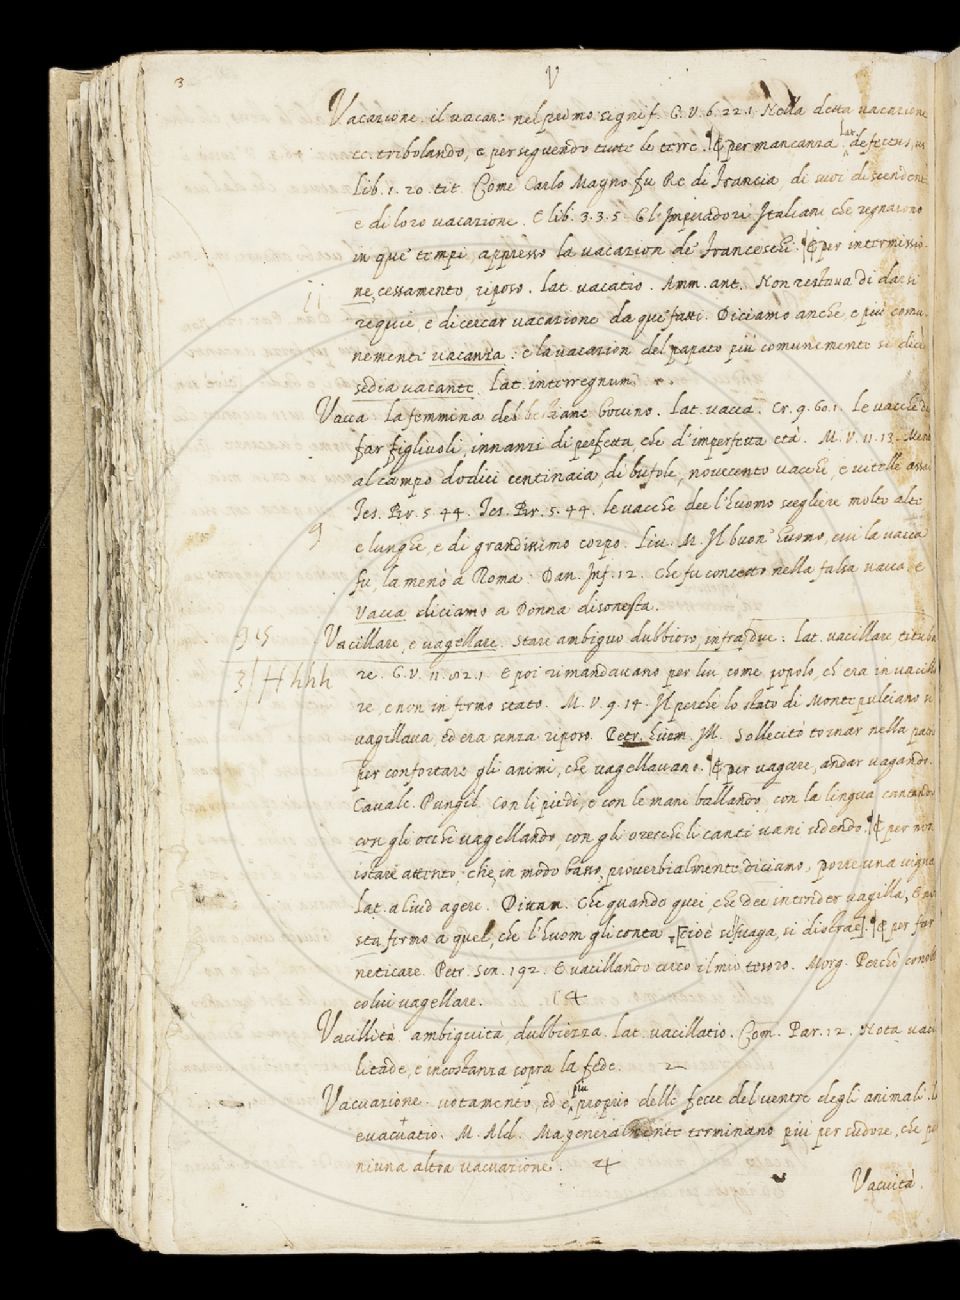 3
V
Vacazione. il vacare nel primo signif. G. V. 6. 22. 1. Nella detta vacazione
ec. tribolando, e perseguendo tutte le terre. ¶ per mancanza lat. defectus,
lib. 1. 20. tit. Come Carlo Magno fu Re di Francia, di suoi discendenti
e di loro vacazione. E lib. 3. 3. 5. Gl'Imperadori Italiani che regnarono
in que' tempi, appresso la vacazion de' Franceschi. ¶ per intermissio-
ii
ne, cessamento, riposo. lat. vacatio. Amm. ant. Non restava di darsi
requie, e di cercar vacazione da que' fatti. Diciamo anche, e più comu-
nemente vacanza: e la vacazion del papato più comunemente si dice
sedia vacante. lat. interregnum.
Vacca. la femmina del bestiame bovino. lat. vacca. Cr. 9. 60. 1. Le vacche da
far figlivoli, innanzi di perfetta che d'imperfetta età. M. V. 11. 13. Menò
al campo dodici centinaia di bufole, novecento vacche, e vitelle assai
Tes. Br. 5. 44. Tes. Br. 5. 44. le vacche dee l'huomo scegliere molto alte
9
e lunghe, e di grandissimo corpo. Liv. M. Il buon' huomo, cui la vacca
fu, la menò a Roma. Dan. Inf. 12. Che fu concetto nella falsa vacca. E
Vacca diciamo a Donna disonesta.
315
Vacillare, e vagellare. Stare ambiguo dubbioso, infra due. lat. vacillare tituba
3 Hhhh
re. G. V. 11. 1. E poi rimandavano per lui, come popolo, ch'era in vacilla
re, e non in fermo stato. M. V. 9. 14. Il perchè lo stato di Montepulciano si
vagillava, ed era senza riposo. Petr. huom. Ill. Sollecitò tornar nella patria
per confortare gli animi, che vagellavano. ¶ per vagare, andar vagando.
Cavalc. Pungil. Con li piedi, e con le mani ballando, con la lingua cantando
con gli occhi vagellando, con gli orecchi li canti vani udendo. ¶ per non
istare attento, che, in modo basso, proverbialmente diciamo, porre una vigna
lat. aliud agere. Dittam. Che quando quei, che dee intender vagilla, E non
sta fermo a quel, che l'huom gli conta [cioè si svaga, si distrae]. ¶ per far
neticare. Petr. Son. 192. E vacillando cerco il mio tesoro. Morg. Perchè conobbe
colui vagellare.
Vacillità. ambiguità, dubbiezza. lat. vacillatio. Com. Par. 12. Nota vacil
litade, e incostanza sopra la fede.
Vacuazione. votamento, ed è più proprio delle fecce del ventre degli animali.
evacuatio. M. Ald. Ma generalmente terminano più per sudore, che per
niuna altra vacuazione.
Vacuità.